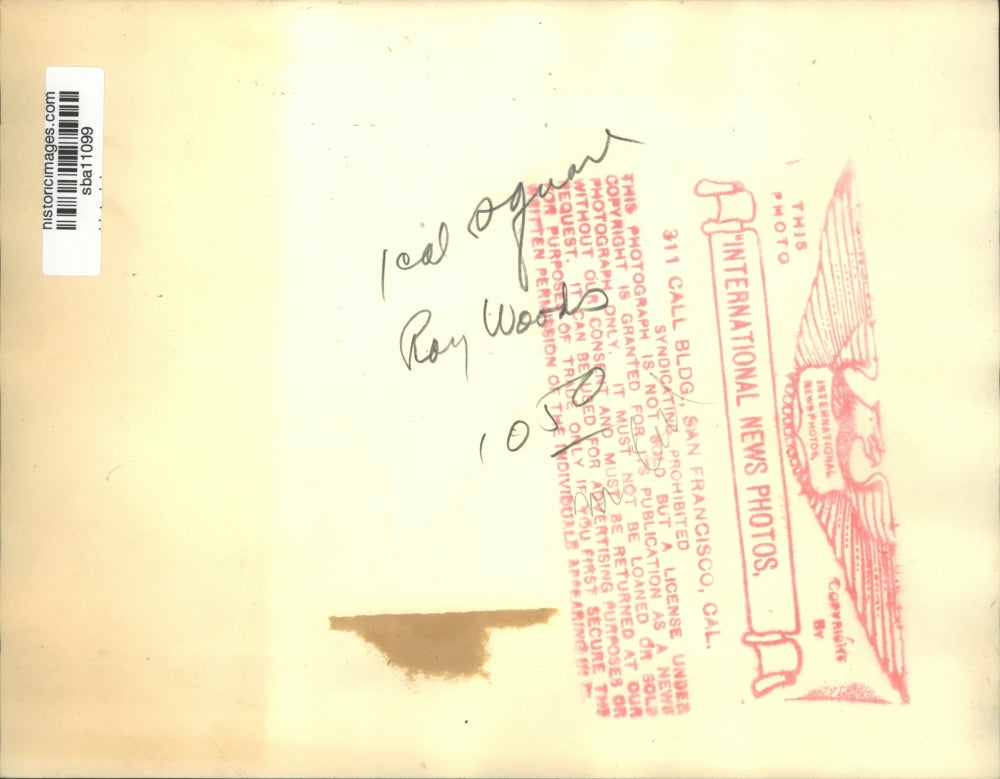 historicimages.com
sba11099
1 col square
Roy Woods
1050
THIS
PHOTO
COPYRIGHT
BY
INTERNATIONAL
NEWS PHOTOS
"INTERNATIONAL NEWS PHOTOS,
311 CALL BLDG., SAN FRANCISCO, CAL.
SYNDICATING PROHIBITED
THIS PHOTOGRAPH IS NOT SOLD BUT A LICENSE UNDER
COPYRIGHT IS GRANTED FOR ITS PUBLICATION AS A NEWS
PHOTOGRAPH ONLY. IT MUST NOT BE LOANED OR SOLD
WITHOUT OUR CONSENT AND MUST BE RETURNED AT OUR
REQUEST. IT CAN BE USED FOR ADVERTISING PURPOSES OR
FOR PURPOSES OF TRADE ONLY IF YOU FIRST SECURE THE
WRITTEN PERMISSION OF THE INDIVIDUALS APPEARING IN